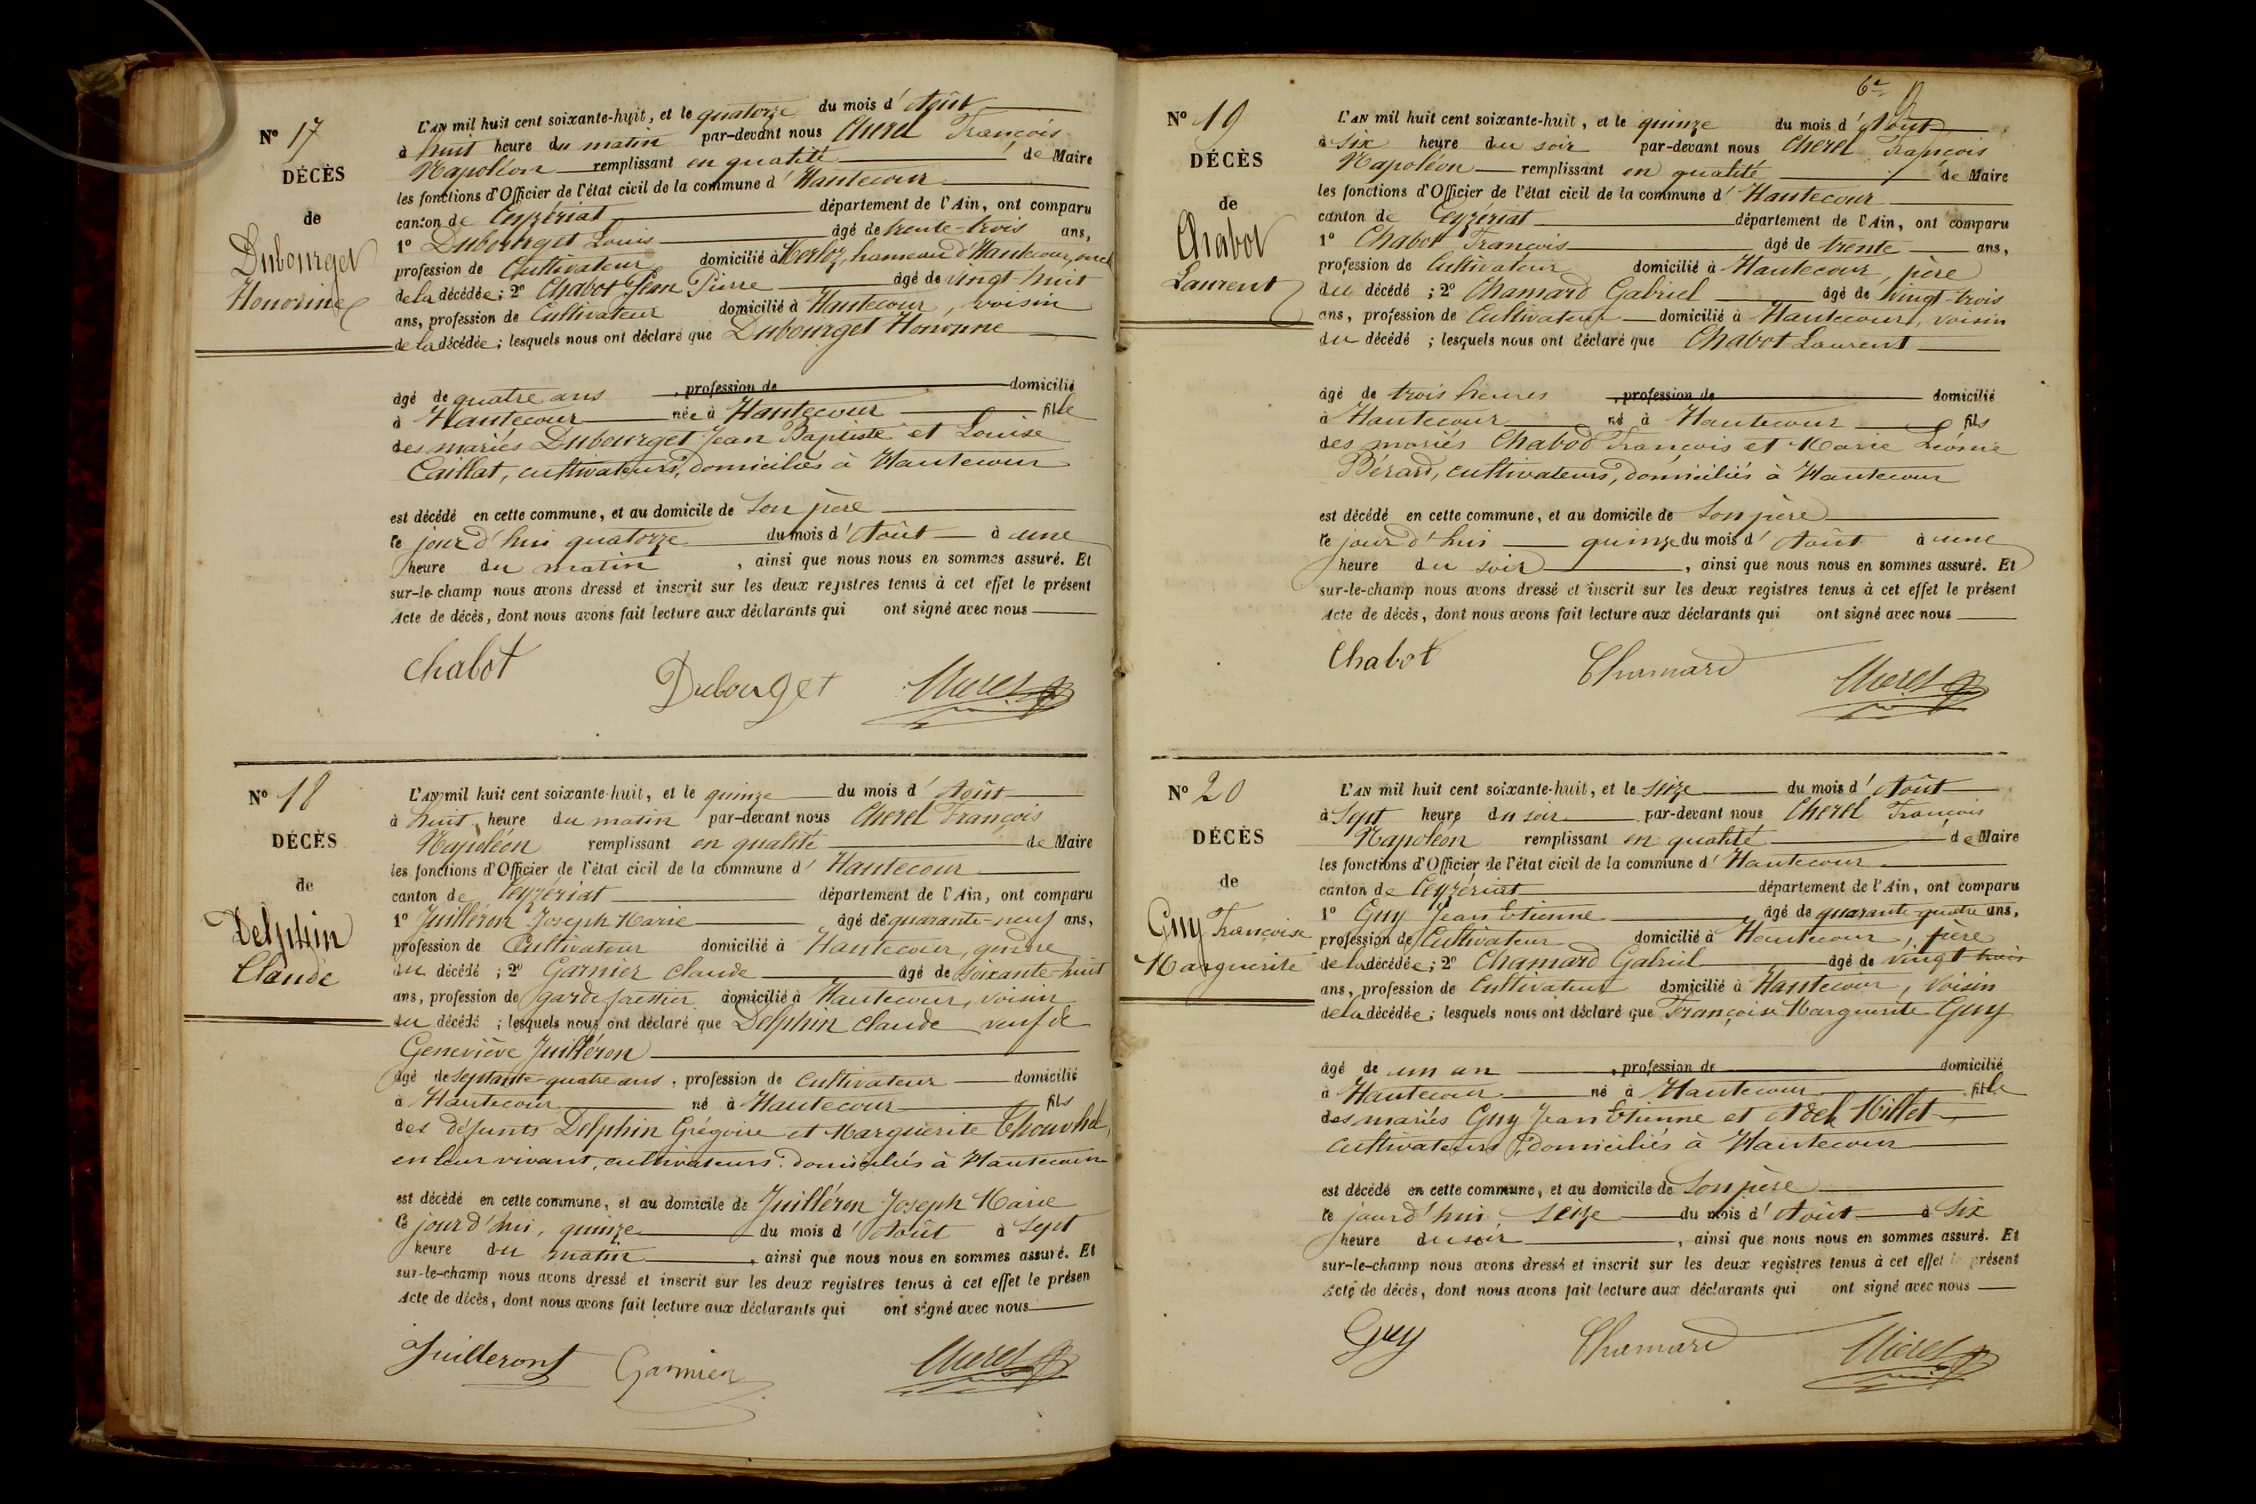 Nº 17
DÉCÈS
de
Dubourget
Honorine
L'AN mil huit cent soixante-huit, et le quatorze du mois d'Août
à huit heure du matin par-devant nous Cherel François
Napoléon remplissant en qualité de Maire
les fonctions d'Officier de l'état civil de la commune d'Hautecour
canton de Ceyzériat département de l'Ain, ont comparu
1º Dubourget Louis âgé de trente-trois ans,
profession de Cultivateur domicilié à Merloz, hameau d'Hautecour, oncle
de la décédée; 2º Chabot Jean Pierre âgé de vingt-huit
ans, profession de Cultivateur domicilié à Hautecour, voisin
de la décédée; lesquels nous ont déclaré que Dubourget Honorine
âgé de quatre ans , profession de domicilié
à Hautecour née à Hautecour fille
des mariés Dubourget Jean Baptiste et Louise
Caillat, cultivateurs, domiciliés à Hautecour
est décédé en cette commune, et au domicile de Son père
le jourd'hui quatorze du mois d'Août à une
heure du matin , ainsi que nous nous en sommes assuré. Et
sur-le-champ nous avons dressé et inscrit sur les deux registres tenus à cet effet le présent
Acte de décès, dont nous avons fait lecture aux déclarants qui ont signé avec nous
Chabot Dubourget Cherel
Nº 18
DÉCÈS
de
Delphin
Claude
L'AN mil huit cent soixante-huit, et le quinze du mois d'Août
à huit heure du matin par-devant nous Cherel François
Napoléon remplissant en qualité de Maire
les fonctions d'Officier de l'état civil de la commune d'Hautecour
canton de Ceyzériat département de l'Ain, ont comparu
1º Juilléron Joseph Marie âgé de quarante-neuf ans,
profession de Cultivateur domicilié à Hautecour, gendre
du décédé ; 2º Garnier Claude âgé de soixante-huit
ans, profession de garde forestier domicilié à Hautecour, voisin
du décédé ; lesquels nous ont déclaré que Delphin Claude veuf de
Geneviève Juilléron
âgé de septante-quatre ans, profession de cultivateur domicilié
à Hautecour né à Hautecour fils
des défunts Delphin Grégoire et Marguerite
en leur vivant, cultivateurs domiciliés à Hautecour
est décédé en cette commune, et au domicile de Juilléron Joseph Marie
le jourd'hui, quinze du mois d'Août à Sept
heure du matin , ainsi que nous nous en sommes assuré. Et
sur-le-champ nous avons dressé et inscrit sur les deux registres tenus à cet effet le présen
Acte de décès, dont nous avons fait lecture aux déclarants qui ont signé avec nous
Juilleront Garnier Cherel
6e
Nº 19
DÉCÈS
de
Chabot
Laurent
L'AN mil huit cent soixante-huit, et le quinze du mois d'Août
à six heure du soir par-devant nous Cherel François
Napoléon remplissant en qualité de Maire
les fonctions d'Officier de l'état civil de la commune d'Hautecour
canton de Ceyzériat département de l'Ain, ont comparu
1º Chabot François âgé de trente ans,
profession de Cultivateur domicilié à Hautecour père
du décédé ; 2º Chamard Gabriel âgé de vingt-trois
ans, profession de Cultivateur domicilié à Hautecour, voisin
du décédé ; lesquels nous ont déclaré que Chabot Laurent
âgé de trois heures , profession de domicilié
à Hautecour né à Hautecour fils
des mariés Chabod François et Marie Léonie
Bérard, cultivateurs, domiciliés à Hautecour
est décédé en cette commune, et au domicile de Son père
le jourd'hui quinze du mois d'Août à une
heure du soir , ainsi que nous nous en sommes assuré. Et
sur-le-champ nous avons dressé et inscrit sur les deux registres tenus à cet effet le présent
Acte de décès, dont nous avons fait lecture aux déclarants qui ont signé avec nous
Chabot Chamard Cherel
Nº 20
DÉCÈS
de
Guy Françoise
Marguerite
L'AN mil huit cent soixante-huit, et le seize du mois d'Août
à Sept heure du soir par-devant nous Cherel François
Napoléon remplissant en qualité de Maire
les fonctions d'Officier de l'état civil de la commune d'Hautecour
canton de Ceyzériat département de l'Ain, ont comparu
1º Guy Jean Etienne âgé de quarante-quatre ans,
profession de Cultivateur domicilié à Hautecour, père
de la décédée; 2º Chamard Gabriel âgé de vingt trois
ans, profession de Cultivateur domicilié à Hautecour, voisin
de la décédée; lesquels nous ont déclaré que Françoise Marguerite Guy
âgé de un an , profession de domicilié
à Hautecour né à Hautecour fille
des mariés Guy Jean Etienne et Adel Millet
cultivateurs, domiciliés à Hautecour
est décédé en cette commune, et au domicile de Son père
le jourd'hui seize du mois d'Août à Six
heure du soir , ainsi que nous nous en sommes assuré. Et
sur-le-champ nous avons dressé et inscrit sur les deux registres tenus à cet effet le présent
Acte de décès, dont nous avons fait lecture aux déclarants qui ont signé avec nous
Guy Chamard Cherel